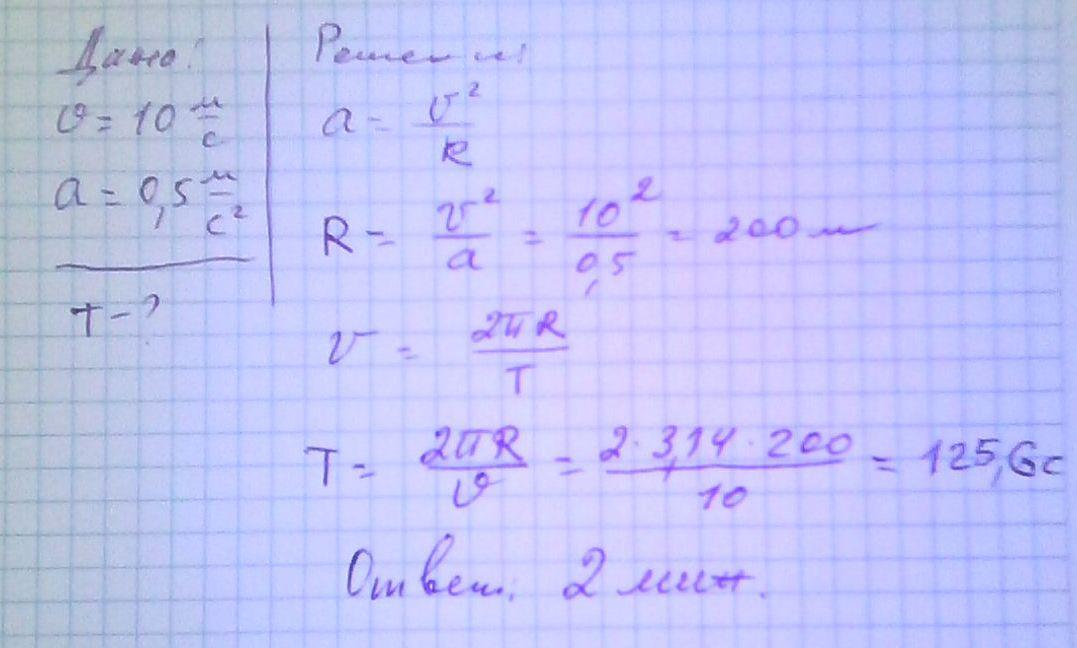 Дано:
υ = 10 м/с
a = 0,5 м/с²
T - ?
Решение:
a = υ²/R
R = υ²/a = 10²/0,5 = 200 м
υ = 2πR/T
T = 2πR/υ = 2·3,14·200/10 = 125,6 с
Ответ: 2 мин.